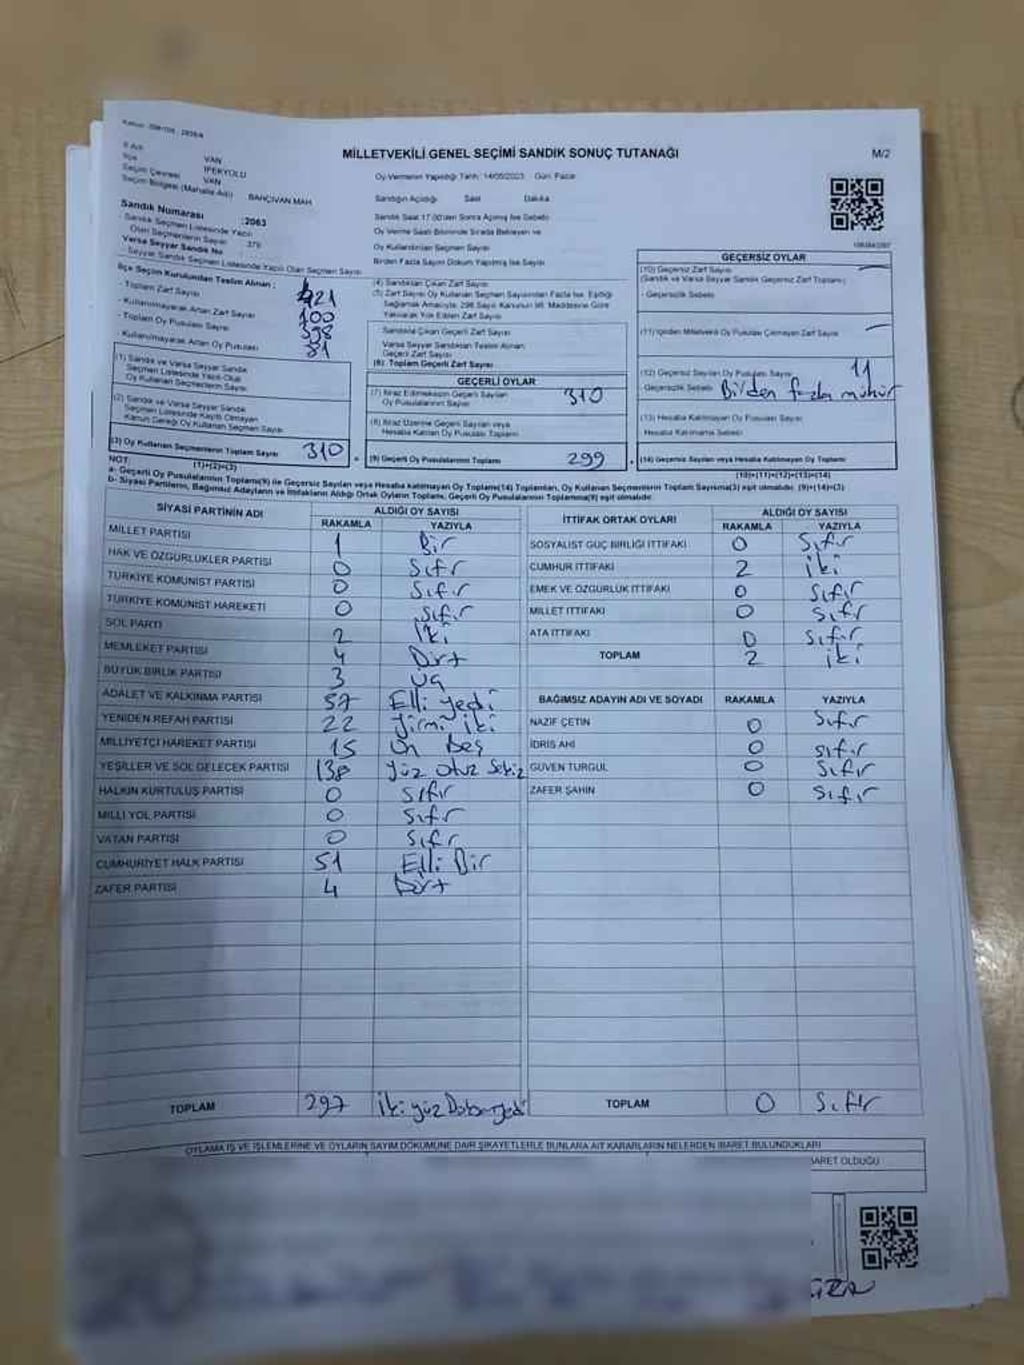 MİLLETVEKİLİ GENEL SEÇİMİ SANDIK SONUÇ TUTANAĞI
M/2
İl Adı VAN
İlçe İPEKYOLU
Seçim Çevresi VAN
Seçim Bölgesi (Mahalle Adı) BAHÇIVAN MAH
Oy Vermenin Yapıldığı Tarih: 14/05/2023 Gün: Pazar
Sandığın Açıldığı Saat Dakika
Sandık Numarası :2063
Sandık Seçmen Listesinde Yazılı
Olan Seçmenlerin Sayısı
Varsa Seyyar Sandık No
Seyyar Sandık Listesinde Yazılı Olan Seçmen Sayısı
Sandık Saat 17.00'den Sonra Açılmış İse Sebebi
Oy Verme Saati Bitiminde Sırada Bekleyen ve
Oy Kullandırılan Seçmen Sayısı
Birden Fazla Sayım Döküm Yapılmış İse Sayısı
İlçe Seçim Kurulundan Teslim Alınan :
- Toplam Zarf Sayısı 421
- Kullanılmayarak Artan Zarf Sayısı 100
- Toplam Oy Pusulası Sayısı 398
- Kullanılmayarak Artan Oy Pusulası 81
(1) Sandık ve Varsa Seyyar Sandık
Seçmen Listesinde Yazılı Olup
Oy Kullanan Seçmenlerin Sayısı
(2) Sandık ve Varsa Seyyar Sandık
Seçmen Listesinde Kayıtlı Olmayan
Kanun Gereği Oy Kullanan Seçmen Sayısı
(3) Oy Kullanan Seçmenlerin Toplam Sayısı 310
(1)+(2)=(3)
(4) Sandıktan Çıkan Zarf Sayısı
(5) Zarf Sayısı Oy Kullanan Seçmen Sayısından Fazla İse, Eşitliği
Sağlamak Amacıyla, 298 Sayılı Kanunun 98. Maddesine Göre
Yakılarak Yok Edilen Zarf Sayısı
Sandıkta Çıkan Geçerli Zarf Sayısı
Varsa Seyyar Sandıktan Teslim Alınan
Geçerli Zarf Sayısı
(6) Toplam Geçerli Zarf Sayısı
GEÇERLİ OYLAR
(7) İtiraz Edilmeksizin Geçerli Sayılan
Oy Pusulalarının Sayısı 310
(8) İtiraz Üzerine Geçerli Sayılan veya
Hesaba Katılan Oy Pusulası Toplamı
(9) Geçerli Oy Pusulalarının Toplamı 299
GEÇERSİZ OYLAR
(10) Geçersiz Zarf Sayısı
(Sandık ve Varsa Seyyar Sandık Geçersiz Zarf Toplamı)
- Geçersizlik Sebebi
(11) İçinden Milletvekili Oy Pusulası Çıkmayan Zarf Sayısı
(12) Geçersiz Sayılan Oy Pusulası Sayısı 11
- Geçersizlik Sebebi Birden fazla mühür
(13) Hesaba Katılmayan Oy Pusulası Sayısı
Hesaba Katılmama Sebebi
(14) Geçersiz Sayılan veya Hesaba Katılmayan Oy Toplamı
(10)+(11)+(12)+(13)=(14)
NOT:
a- Geçerli Oy Pusulalarının Toplamı(9) ile Geçersiz Sayılan veya Hesaba Katılmayan Oy Toplamı(14) Toplamları, Oy Kullanan Seçmenlerin Toplam Sayısına(3) eşit olmalıdır. (9)+(14)=(3)
b- Siyasi Partilerin, Bağımsız Adayların ve İttifakların Aldığı Ortak Oyların Toplamı, Geçerli Oy Pusulalarının Toplamına(9) eşit olmalıdır.
SİYASİ PARTİNİN ADI ALDIĞI OY SAYISI
RAKAMLA YAZIYLA
MİLLET PARTİSİ 1 Bir
HAK VE ÖZGÜRLÜKLER PARTİSİ 0 Sıfır
TÜRKİYE KOMÜNİST PARTİSİ 0 Sıfır
TÜRKİYE KOMÜNİST HAREKETİ 0 Sıfır
SOL PARTİ 2 İki
MEMLEKET PARTİSİ 4 Dört
BÜYÜK BİRLİK PARTİSİ 3 Üç
ADALET VE KALKINMA PARTİSİ 57 Elli yedi
YENİDEN REFAH PARTİSİ 22 Yirmi iki
MİLLİYETÇİ HAREKET PARTİSİ 15 On Beş
YEŞİLLER VE SOL GELECEK PARTİSİ 138 Yüz otuz Sekiz
HALKIN KURTULUŞ PARTİSİ 0 Sıfır
MİLLİ YOL PARTİSİ 0 Sıfır
VATAN PARTİSİ 0 Sıfır
CUMHURİYET HALK PARTİSİ 51 Elli Bir
ZAFER PARTİSİ 4 Dört
TOPLAM 297
İTTİFAK ORTAK OYLARI ALDIĞI OY SAYISI
RAKAMLA YAZIYLA
SOSYALİST GÜÇ BİRLİĞİ İTTİFAKI 0 Sıfır
CUMHUR İTTİFAKI 2 İki
EMEK VE ÖZGÜRLÜK İTTİFAKI 0 Sıfır
MİLLET İTTİFAKI 0 Sıfır
ATA İTTİFAKI 0 Sıfır
TOPLAM 2 İki
BAĞIMSIZ ADAYIN ADI VE SOYADI RAKAMLA YAZIYLA
NAZİF ÇETİN 0 Sıfır
İDRİS AHİ 0 Sıfır
GÜVEN TURGUL 0 Sıfır
ZAFER ŞAHİN 0 Sıfır
TOPLAM 0 Sıfır
OYLAMA İŞ VE İŞLEMLERİNE VE OYLARIN SAYIM DÖKÜMÜNE DAİR ŞİKAYETLERLE BUNLARA AİT KARARLARIN NELERDEN İBARET BULUNDUKLARI
BARET OLDUĞU